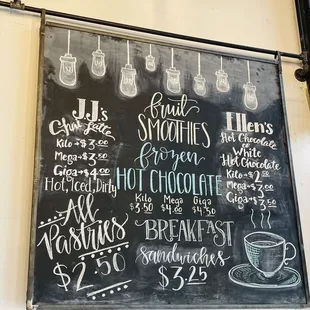 J.J.'s
Chai Latte
Kilo $3.00
Mega $3.50
Giga $4.00
Hot, Iced, Dirty
All
Pastries
$2.50
fruit
SMOOTHIES
frozen
HOT CHOCOLATE
Kilo Mega Giga
$3.50 $4.00 $4.50
BREAKFAST
sandwiches
$3.25
Ellen's
Hot Chocolate
or
White
Hot Chocolate
Kilo $2.50
Mega $3.00
Giga $3.50